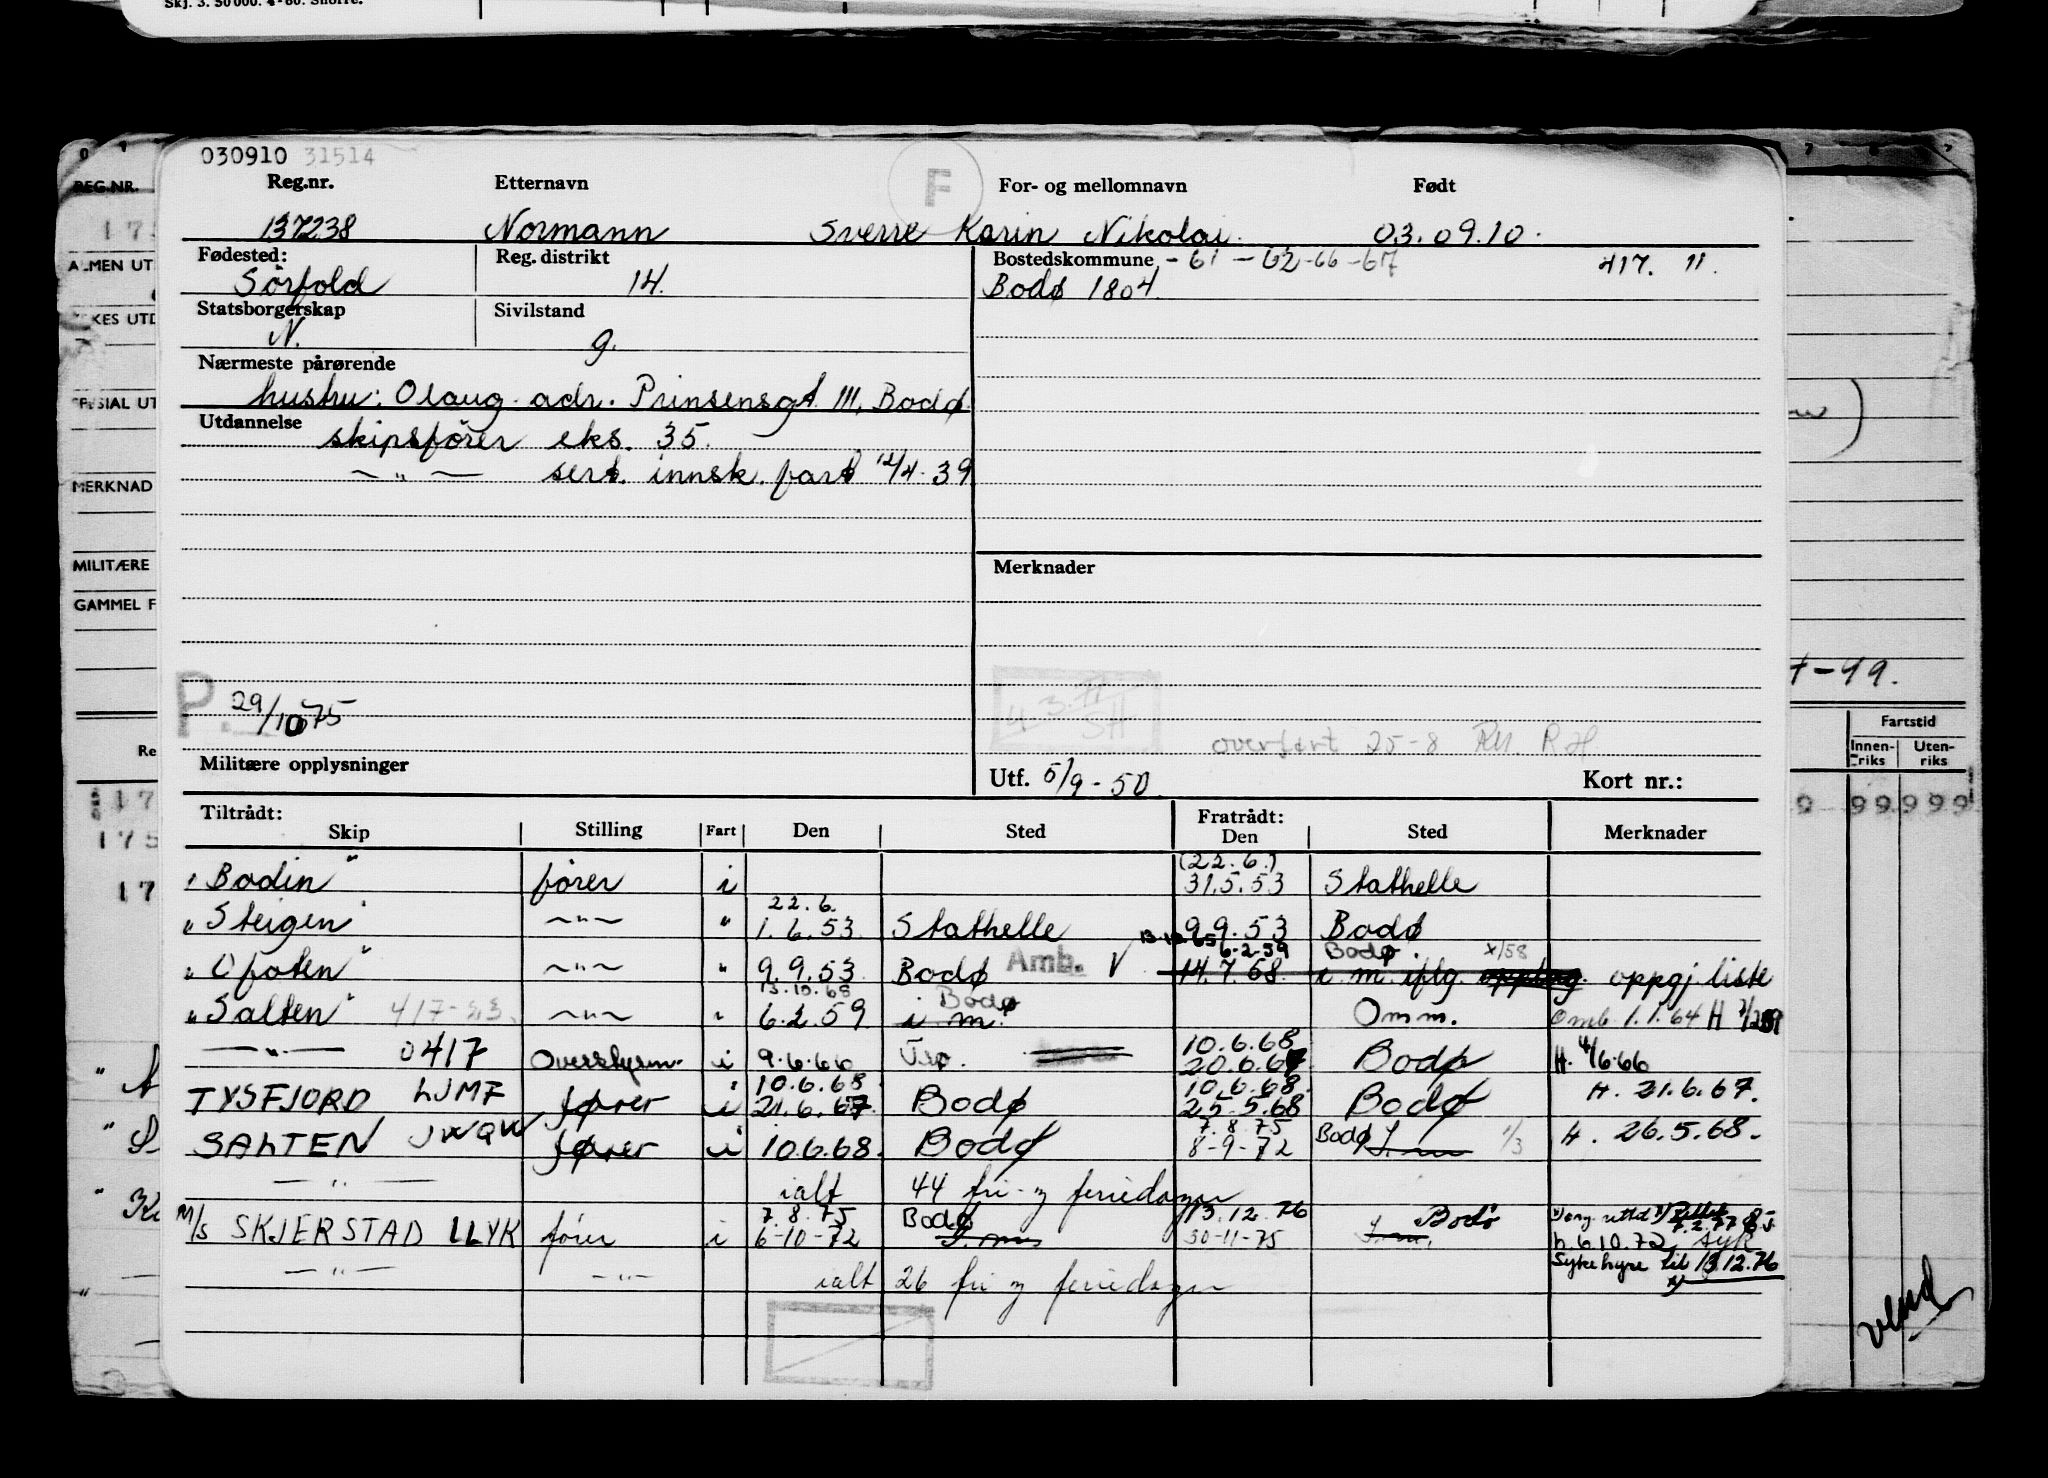 Skj. 3. 50 000. 4-60. Snorre.
030910 31514
F
Reg.nr. Etternavn For- og mellomnavn Født
137238 Normann Sverre Karin Nikolai 03.09.10.
Fødested: Reg. distrikt Bostedskommune - 61 - 62 - 66 - 67 417. 11.
Sörfold 14. Bodø 1804.
Statsborgerskap Sivilstand
N. g.
Nærmeste pårørende
hustru: Olaug adr. Prinsensgt. 111, Bodø.
Utdannelse
skipsfører eks. 35.
— " — sert. innsk. fart 12/4-39
Merknader
P. 29/10 75
overført 25-8
Militære opplysninger
Utf. 5/9-50. Kort nr.:
Tiltrådt: Fratrådt:
Skip Stilling Fart Den Sted Den Sted Merknader
(22.6.)
"Bodin" fører i 31.5.53 Stathelle
22.6.
"Steigen" — " — " 1.6.53. Stathelle 9.9.53 Bodø
13.10.65 6.2.59 Bodø. x/58
"Ofoten" — " — " 9.9.53 Bodø Amb. V 14.7.68 i.m. iflg. opplag. oppgj. liste
13.10.68 Bodø
"Salten" 417-23. — " — " 6.2.59 i.m. Omm. Omb. 1.1.64 H
10.6.68
— " — 0417 Overstyrm. i 9.6.66 20.6.67 Bodø H. 4/6.66
10.6.68 10.6.68
TYSFJORD LJMF fører i 21.6.67. Bodø 25-5.68 Bodø H. 21.6.67.
7.8.75
SALTEN JWQW fører i 10.6.68. Bodø 8-9-72 Bodø I.m. 1/3 H. 26.5.68.
— " — ialt 44 fri- og feriedager
7.8.75 Bodø 13.12.76 Bodø
M/S SKJERSTAD LLYK fører i 6-10-72 I.m. 30-11-75 I.m. h. 6.10.72 syk
Sykehyre til 13.12.76
— " — — " — ialt 26 fri og feriedager
REG.NR.
MERKNAD
MILITÆRE
GAMMEL F
Fartstid
Innen-riks Uten-riks